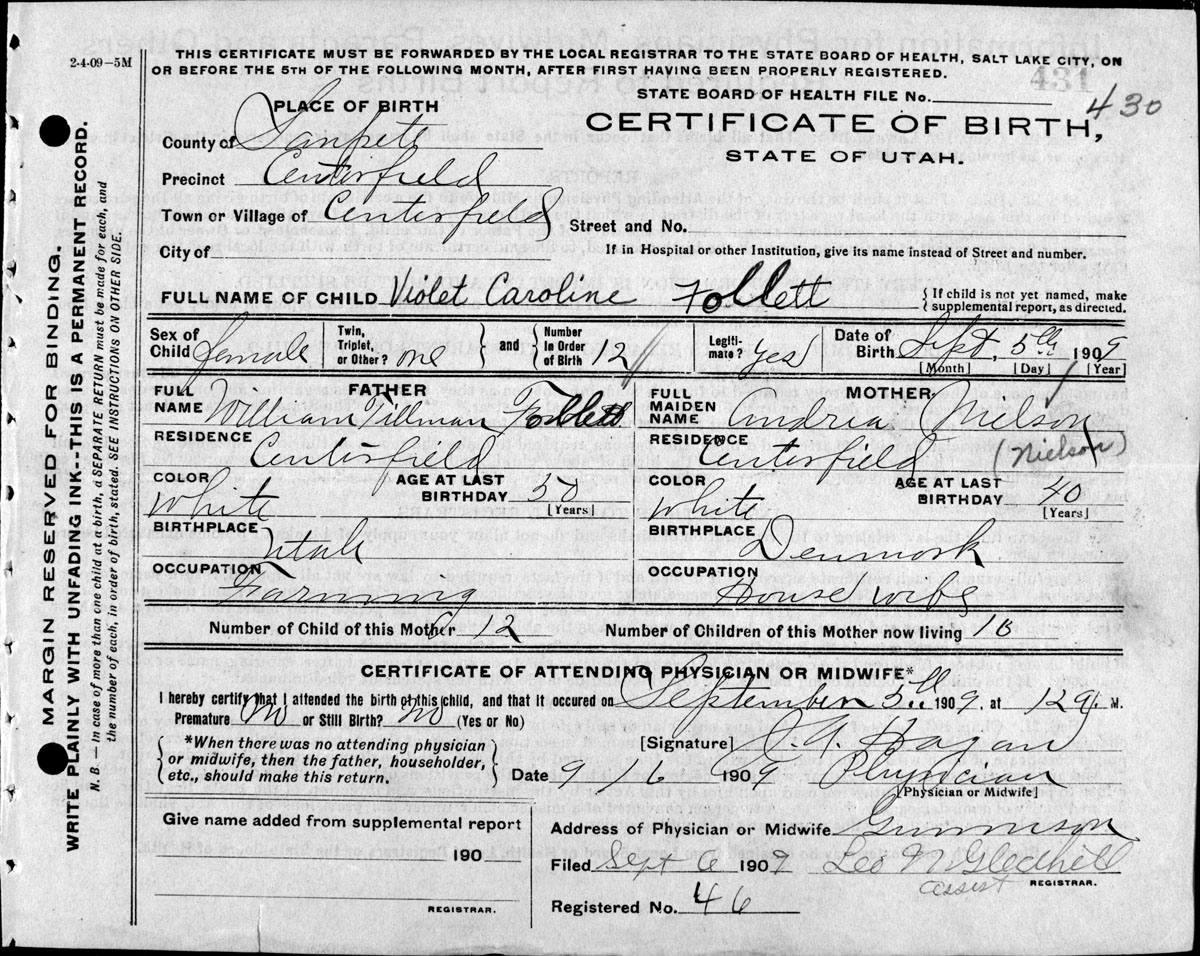 2-4-09–5M
THIS CERTIFICATE MUST BE FORWARDED BY THE LOCAL REGISTRAR TO THE STATE BOARD OF HEALTH, SALT LAKE CITY, ON
OR BEFORE THE 5TH OF THE FOLLOWING MONTH, AFTER FIRST HAVING BEEN PROPERLY REGISTERED.
431
STATE BOARD OF HEALTH FILE No. 430
PLACE OF BIRTH
CERTIFICATE OF BIRTH,
STATE OF UTAH.
County of Sanpete
Precinct Centerfield
Town or Village of Centerfield Street and No.
City of If in Hospital or other Institution, give its name instead of Street and number.
FULL NAME OF CHILD Violet Caroline Follett { If child is not yet named, make supplemental report, as directed.
Sex of Child female Twin, Triplet, or Other? one } and { Number in Order of Birth 12 Legiti-mate? Yes Date of Birth Sept. 5th 1909
[Month] [Day] [Year]
FATHER MOTHER
FULL NAME William Tillman Follett FULL MAIDEN NAME Andrea Nelson
(Nielson)
RESIDENCE Centerfield RESIDENCE Centerfield
COLOR White AGE AT LAST BIRTHDAY 50 [Years] COLOR White AGE AT LAST BIRTHDAY 40 [Years]
BIRTHPLACE Utah BIRTHPLACE Denmark
OCCUPATION Farming OCCUPATION House wife
Number of Child of this Mother 12 Number of Children of this Mother now living 10
CERTIFICATE OF ATTENDING PHYSICIAN OR MIDWIFE*
I hereby certify that I attended the birth of this child, and that it occured on September 5th 1909, at 12 M.
Premature No or Still Birth? No (Yes or No)
*When there was no attending physician
or midwife, then the father, householder,
etc., should make this return.
[Signature] Hagan
Date 9 16 1909 Physician
[Physician or Midwife]
Give name added from supplemental report
190
REGISTRAR.
Address of Physician or Midwife Gunnison
Filed Sept 6 1909 Leo N Gledhill
assist REGISTRAR.
Registered No. 46
MARGIN RESERVED FOR BINDING.
WRITE PLAINLY WITH UNFADING INK--THIS IS A PERMANENT RECORD.
N. B. — In case of more than one child at a birth, a SEPARATE RETURN must be made for each, and
the number of each, in order of birth, stated. SEE INSTRUCTIONS ON OTHER SIDE.